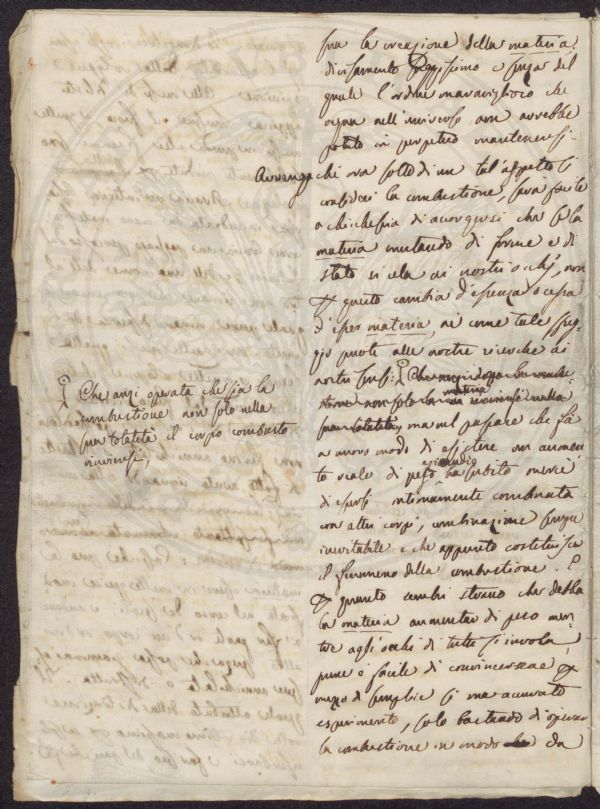 fra la creazione della materia,
divisamento saggissimo e senza del
quale l'ordine maraviglioso che
regna nell'universo non avrebbe
potuto in perpetuo mantenersi.
Avvenga chi ora sotto di un tal aspetto si
consideri la combustione, sarà facile
a chichessia di accorgersi che se la
materia mutando di forme e di
stato si cela ai nostri occhj, non
questo cambia d'essenza o cessa
d'esser materia, nè come tale
alle nostre ricerche ai
nostri sensi:
materia
ma nel passare che fa
a nuovo modo di esistere un aumen
to reale di peso ha subito mercè
di essersi intimamente combinata
con altri corpi, combinazione sempre
inevitabile e che appunto costituisce
il fenomeno della combustione. E
quanto sembri strano che debba
la materia aumentar di peso men
tre agli occhi di tutti s'invola,
pure è facile di convincersene
mezzo di semplice sì ma accurato
esperimento, solo bastando di operare
la combustione in modo da
Che anzi operata che sia la
combustione non solo nella
sua totalità il corpo combusto
rinviensi,